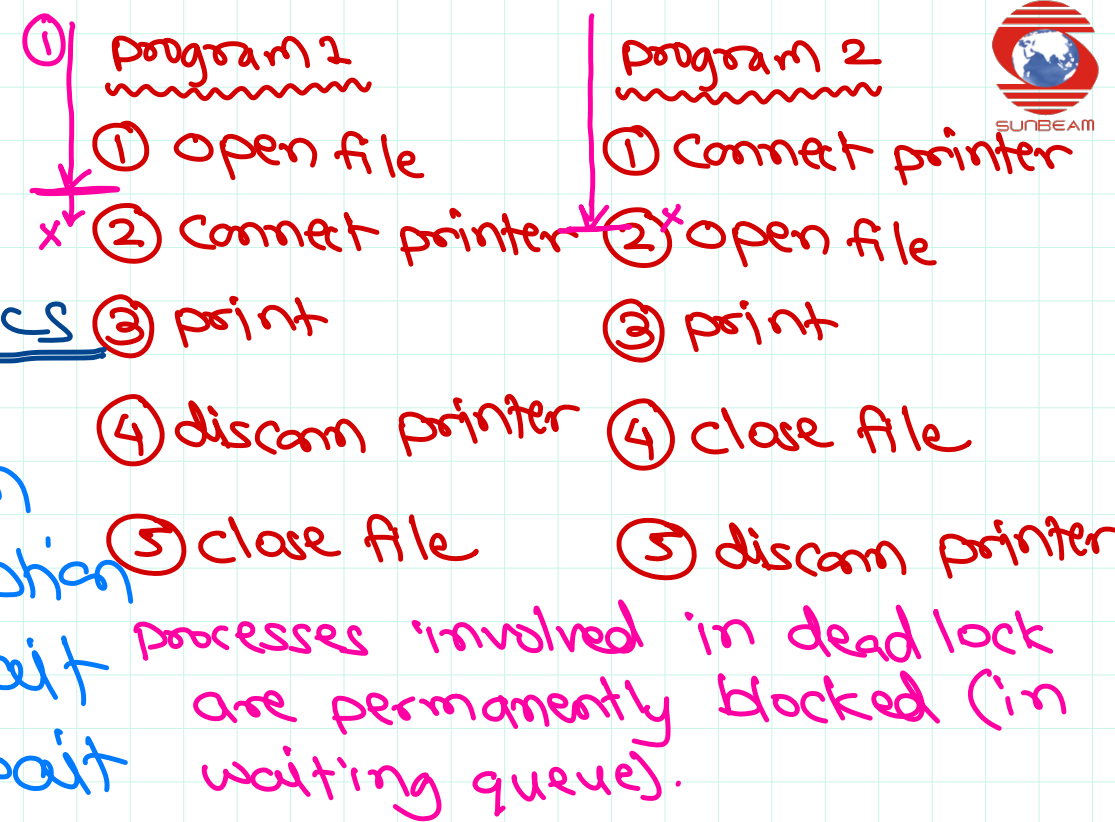 ① program 1
① open file
② connect printer
CS ③ print
④ disconn printer
⑤ close file
program 2
① connect printer
② open file
③ print
④ close file
⑤ disconn printer
SUNBEAM
processes involved in deadlock
are permanently blocked (in
waiting queue).